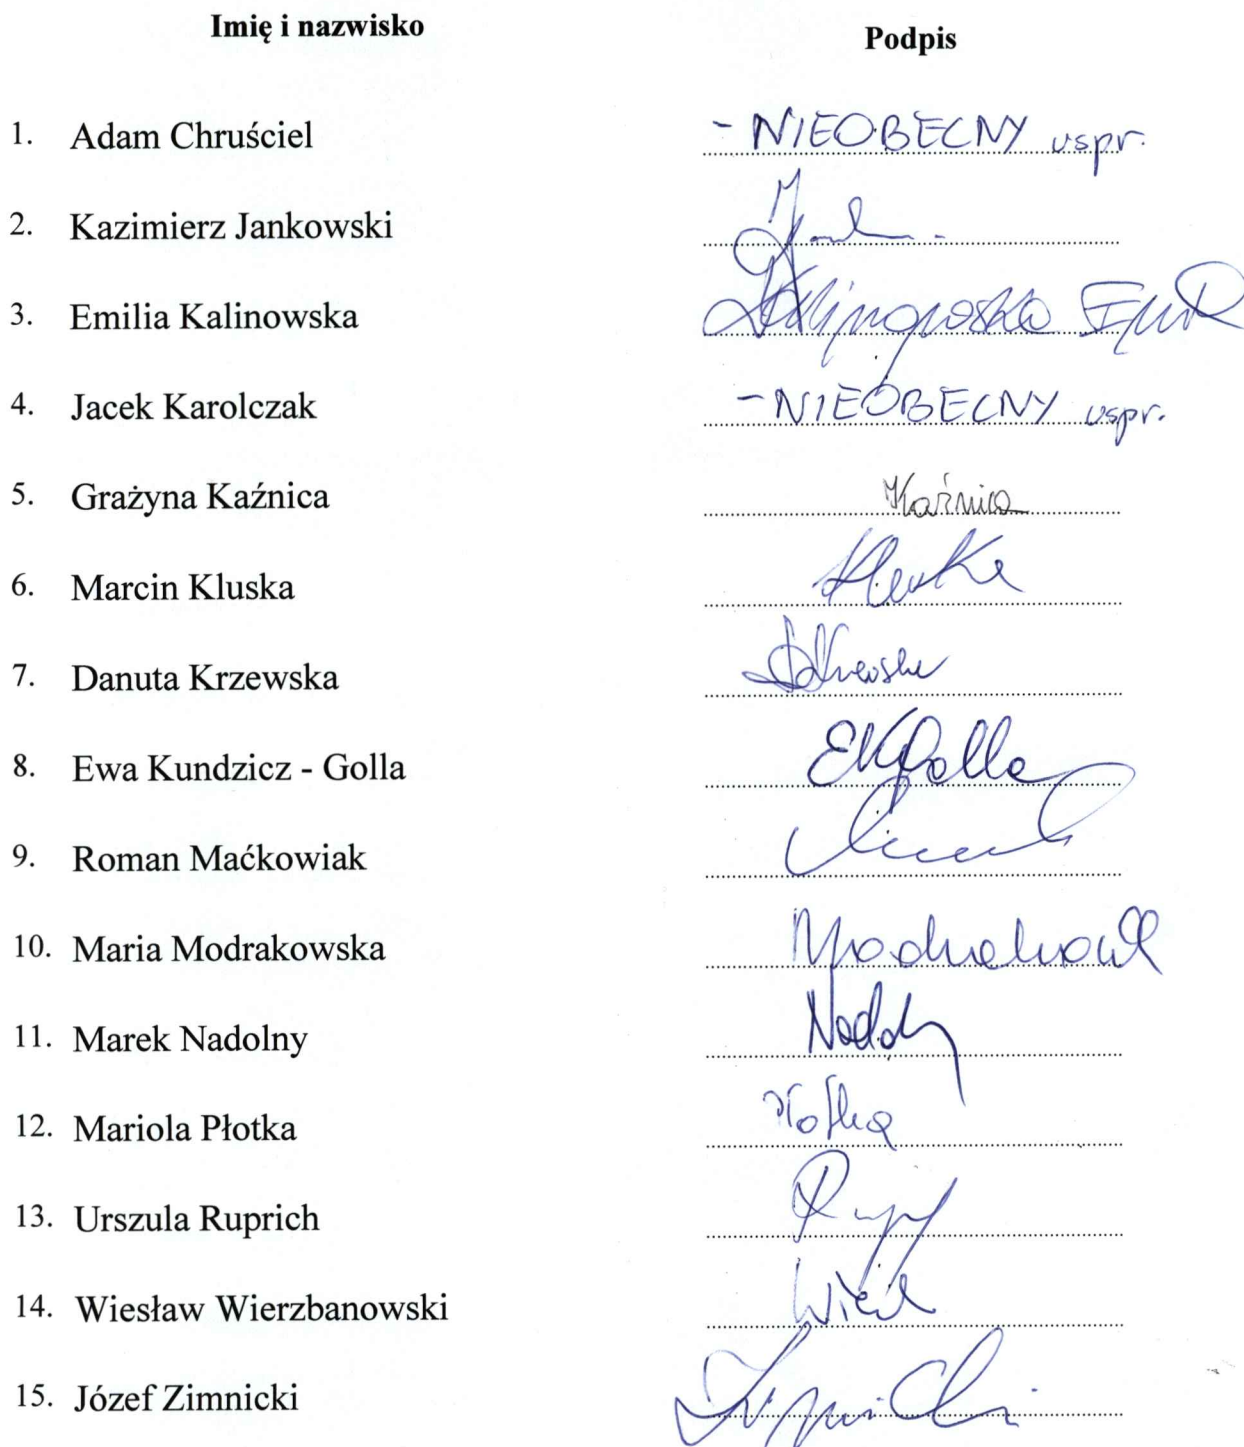 Imię i nazwisko Podpis
1. Adam Chruściel - NIEOBECNY uspr.
2. Kazimierz Jankowski
3. Emilia Kalinowska Kalinowska Emilia
4. Jacek Karolczak - NIEOBECNY uspr.
5. Grażyna Kaźnica Kaźnica
6. Marcin Kluska Kluska
7. Danuta Krzewska DKrzewska
8. Ewa Kundzicz - Golla EKGolla
9. Roman Maćkowiak
10. Maria Modrakowska
11. Marek Nadolny Nadolny
12. Mariola Płotka Płotka
13. Urszula Ruprich
14. Wiesław Wierzbanowski
15. Józef Zimnicki